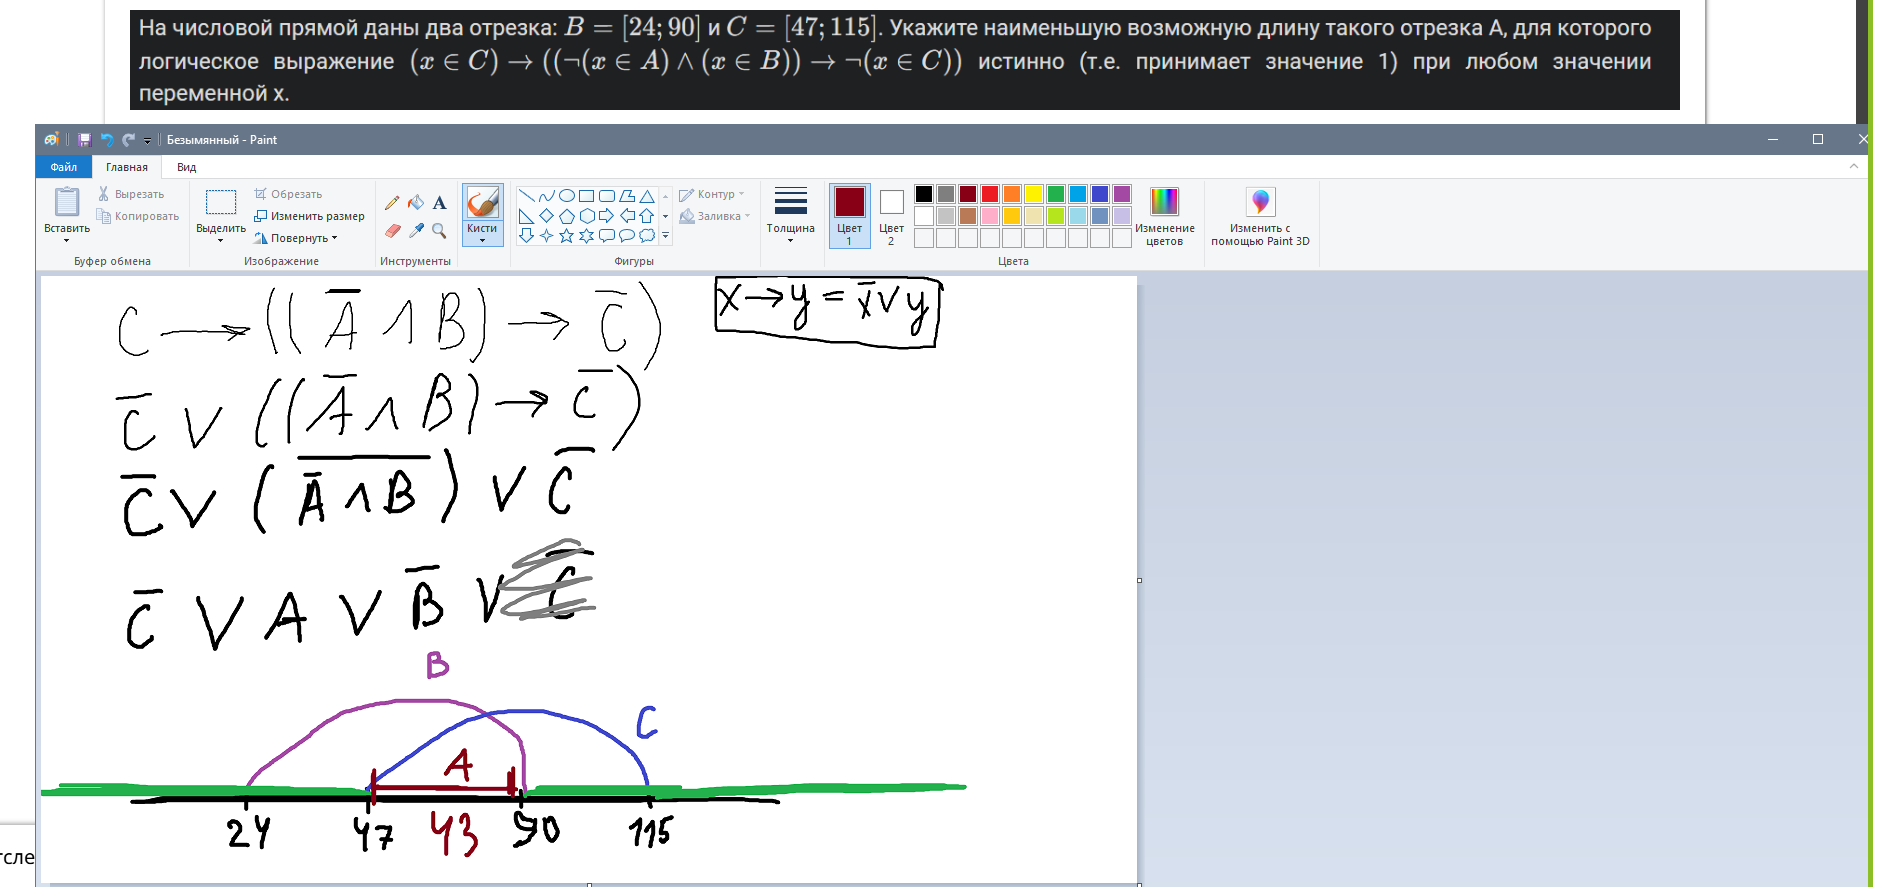 На числовой прямой даны два отрезка: B = [24; 90] и C = [47; 115]. Укажите наименьшую возможную длину такого отрезка A, для которого
логическое выражение (x ∈ C) → ((¬(x ∈ A) ∧ (x ∈ B)) → ¬(x ∈ C)) истинно (т.е. принимает значение 1) при любом значении
переменной x.
Безымянный - Paint
Файл Главная Вид
Вставить
Вырезать
Копировать
Буфер обмена
Выделить
Обрезать
Изменить размер
Повернуть
Изображение
A
Инструменты
Кисти
Контур
Заливка
Фигуры
Толщина
Цвет
1
Цвет
2
Изменение
цветов
Цвета
Изменить с
помощью Paint 3D
C → ((A̅ ∧ B) → C̅)
x → y = x̅ ∨ y
C̅ ∨ ((A̅ ∧ B) → C̅)
C̅ ∨ (\overline{A̅ ∧ B}) ∨ C̅
C̅ ∨ A ∨ B̅ ∨ C̅
B
C
A
24 47 43 90 115
тсле